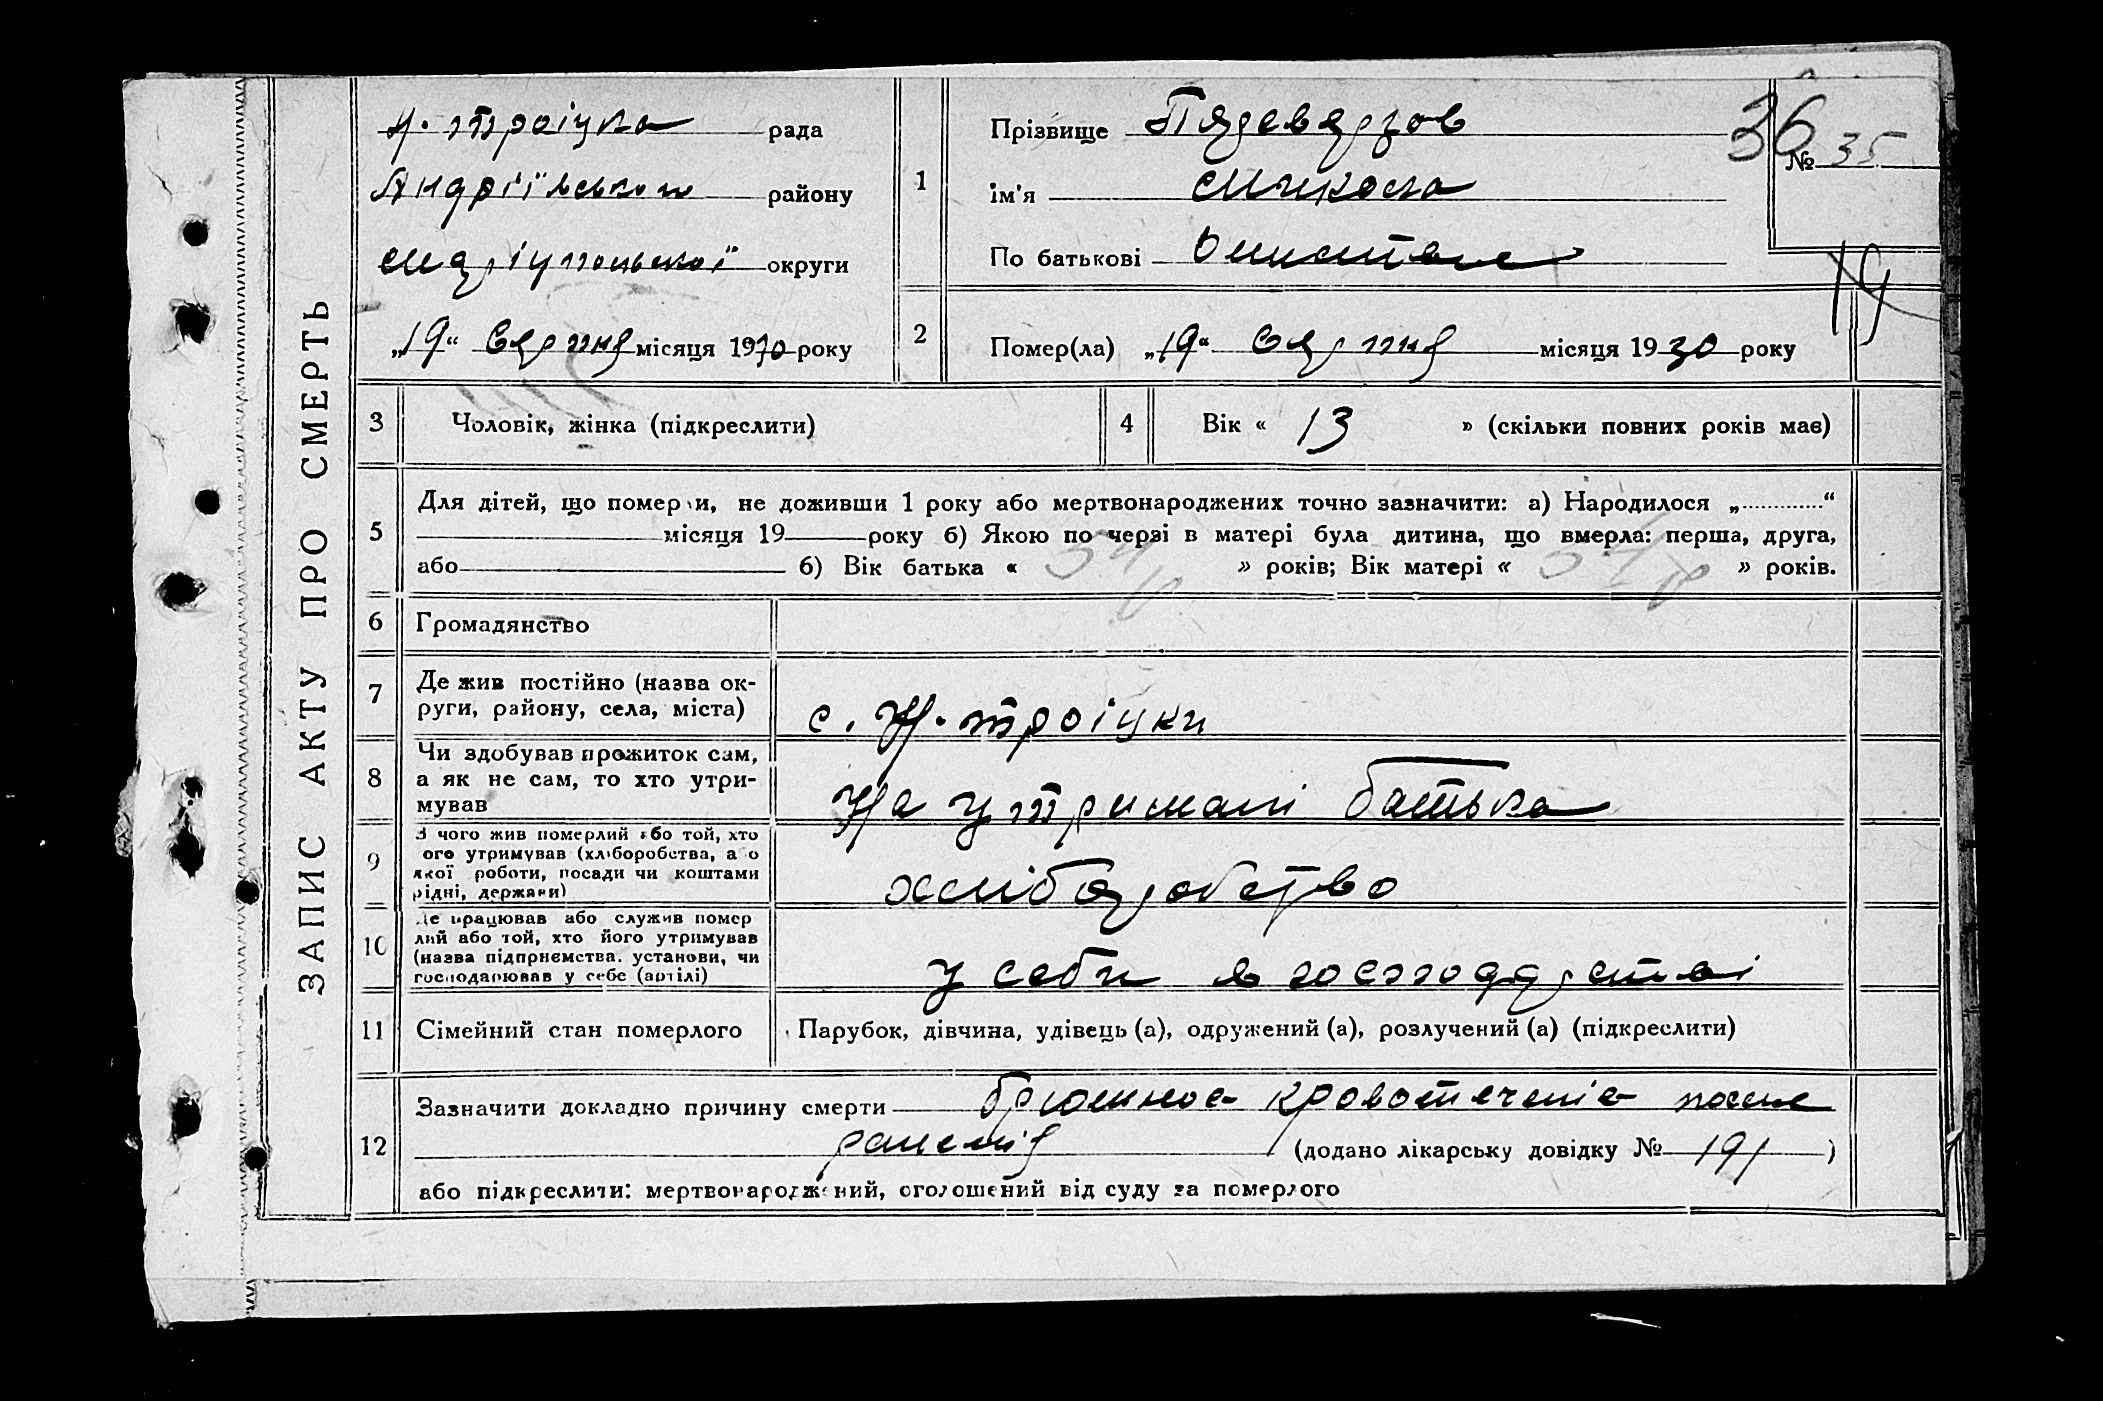 ЗАПИС АКТУ ПРО СМЕРТЬ
Н. троіцка рада
Андріївського району
Маріупольської округи
„19“ Серпня місяця 1930 року
1
Прізвище
ім'я Микола
По батькові
36
№ 35
19
2
Помер(ла) „19“ Серпня місяця 1930 року
3 Чоловік, жінка (підкреслити)
4 Вік « 13 » (скільки повних років має)
5 Для дітей, що померли, не доживши 1 року або мертвонароджених точно зазначити: а) Народилося „............“
місяця 19 року б) Якою по черзі в матері була дитина, що вмерла: перша, друга,
або б) Вік батька « » років; Вік матері « » років.
6 Громадянство
7 Де жив постійно (назва ок-
руги, району, села, міста)
с. Н. троіцки
8 Чи здобував прожиток сам,
а як не сам, то хто утри-
мував
На утримані батька
9 З чого жив померлий або той, хто
ого утримував (хліборобства, а о
якої роботи, посади чи коштами
рідні, держави)
хлібаробство
10 Де працював або служив помер
лий або той, хто його утримував
(назва підприємства, установи, чи
господарював у себе (артілі)
у себи в господарстві
11 Сімейний стан померлого
Парубок, дівчина, удівець (а), одружений (а), розлучений (а) (підкреслити)
12 Зазначити докладно причину смерти брюшное кровотечение после
ранения (додано лікарську довідку № 191 )
або підкреслити: мертвонароджений, оголошений від суду за померлого